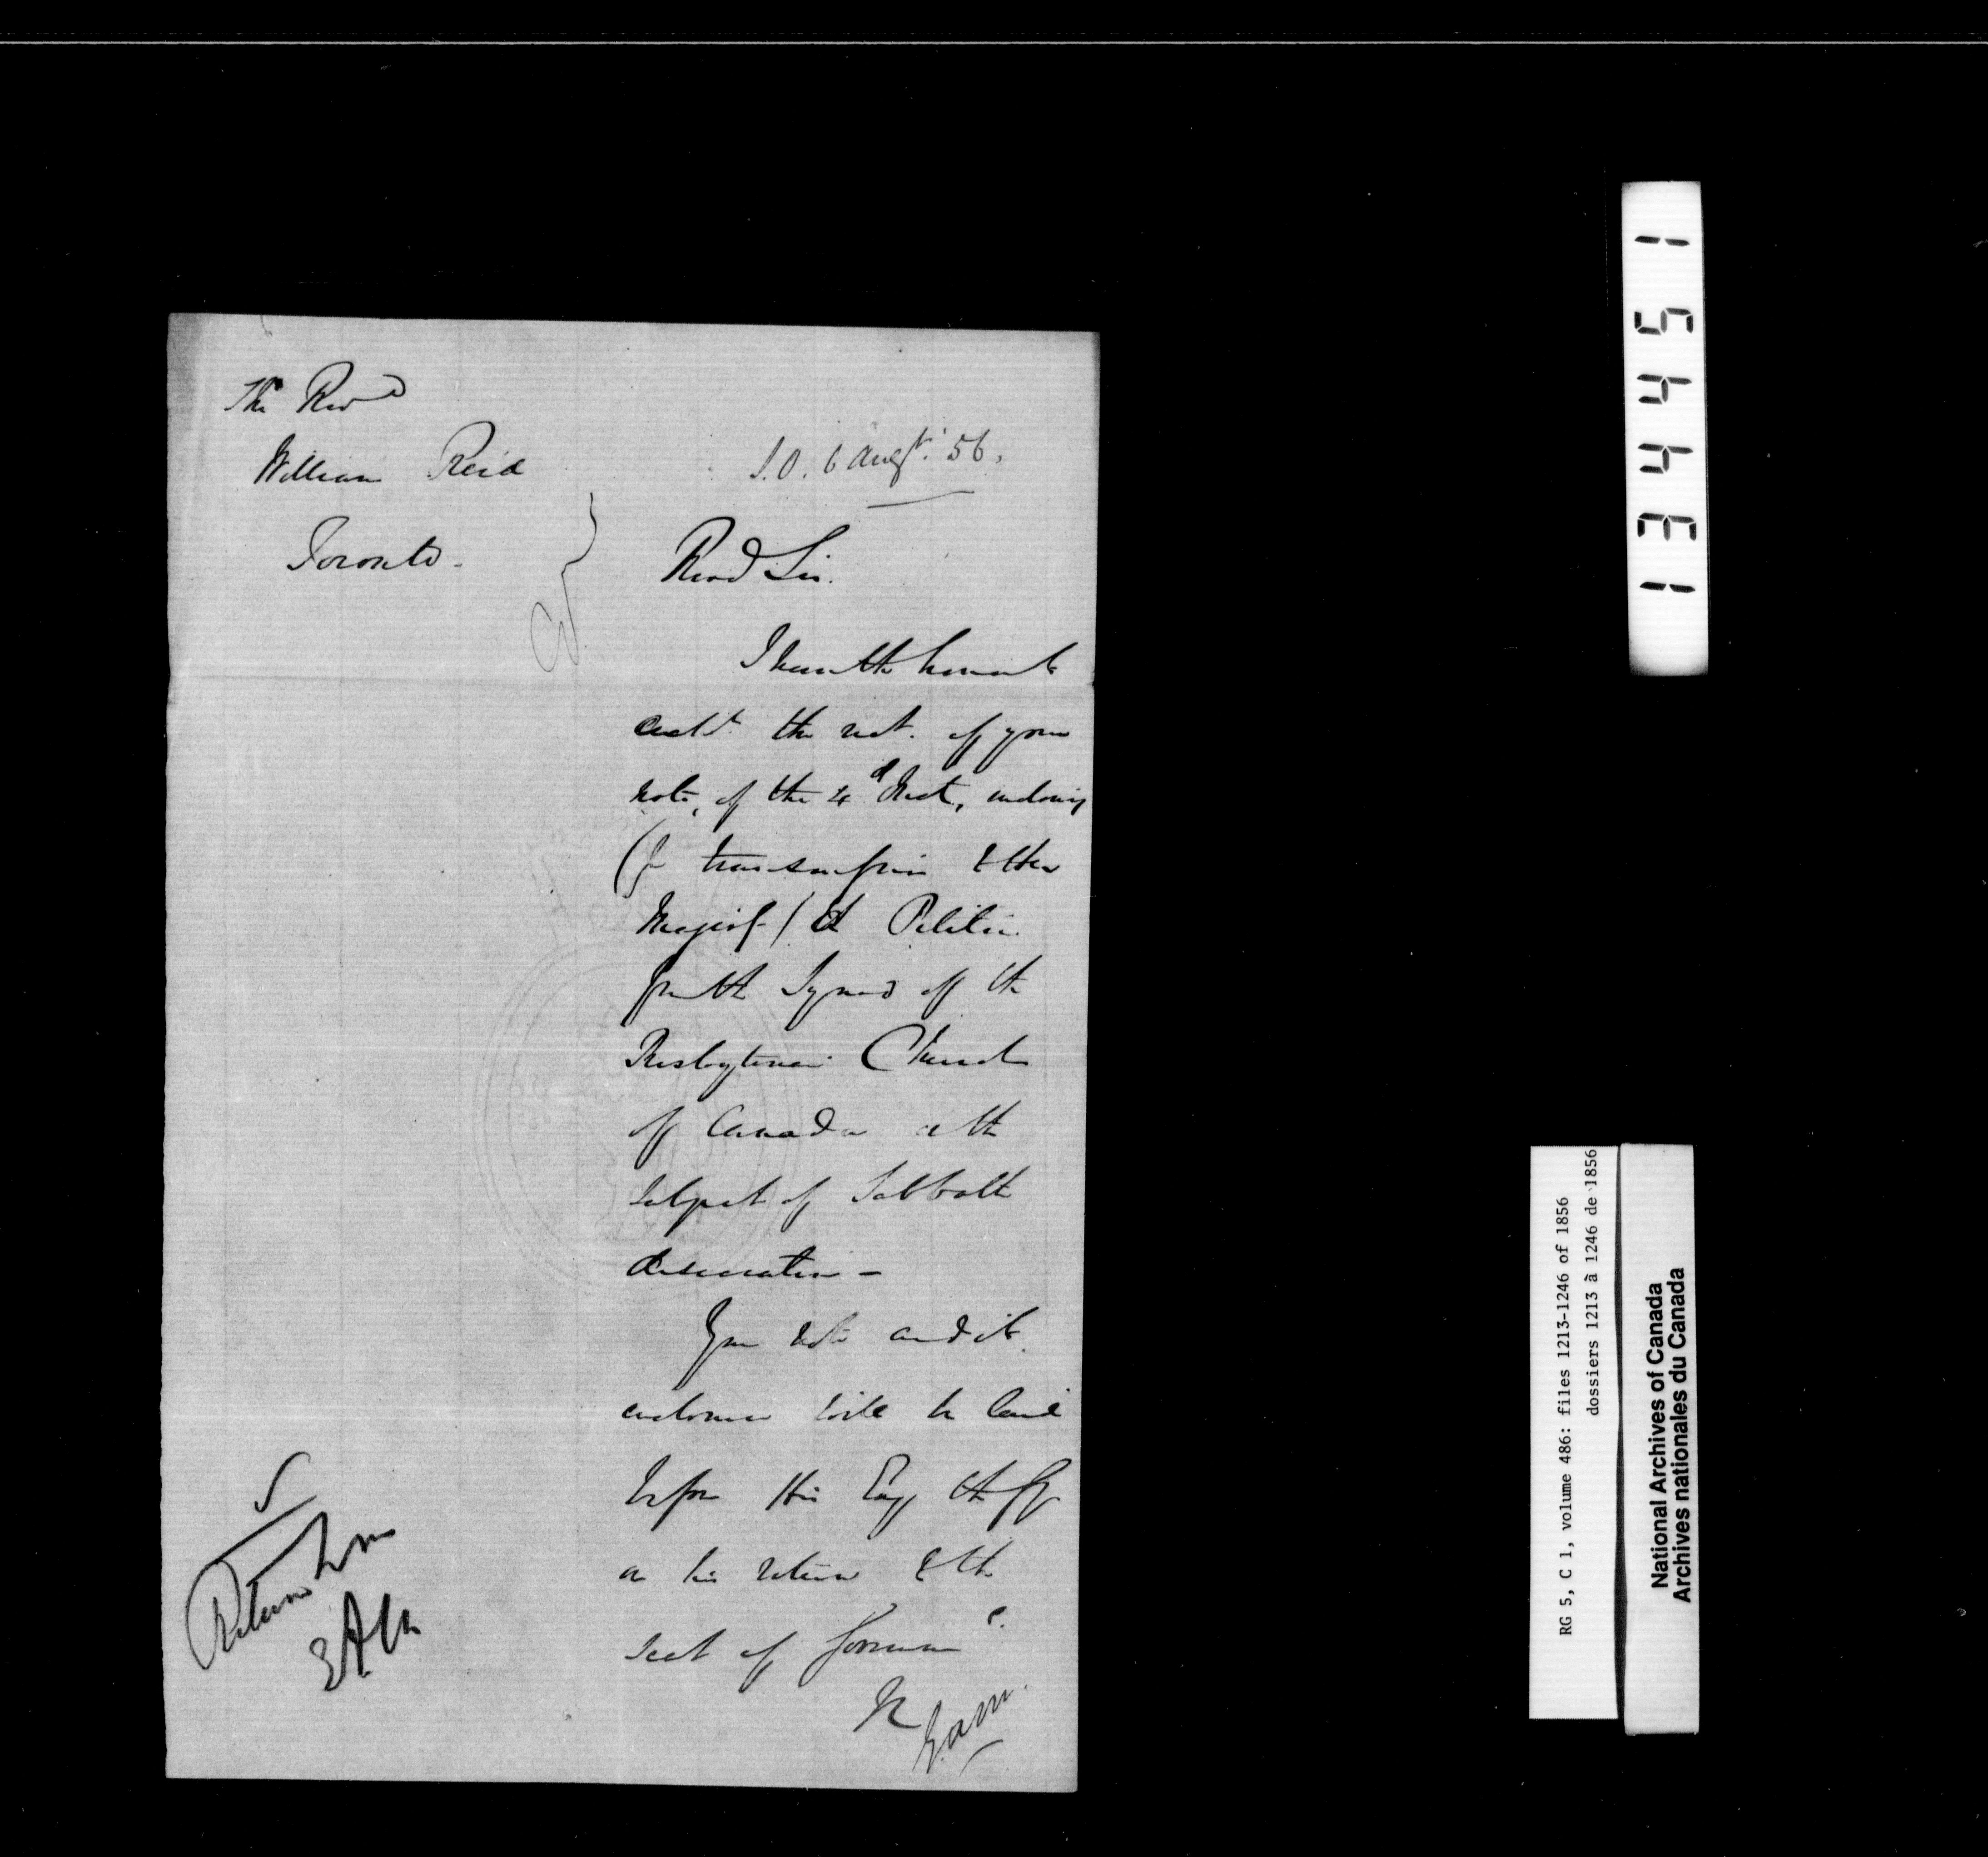 The Revd
William Reid
Toronto.
S.O. 6 Augt. '56.
Revd Sir.
I have the honor to
ackd. the rect. of your
note, of the 4 Inst, enclosing
(for transmission to Her
Majesty) a Petition
from the Synod of the
Presbyterian Church
of Canada on the
subject of Sabbath
desecration –
Your note and its
enclosure will be laid
before His Exy the GG
on his return to the
Seat of Governm
Return
RG 5, C 1, volume 486: files 1213-1246 of 1856
dossiers 1213 à 1246 de 1856
National Archives of Canada
Archives nationales du Canada
134451